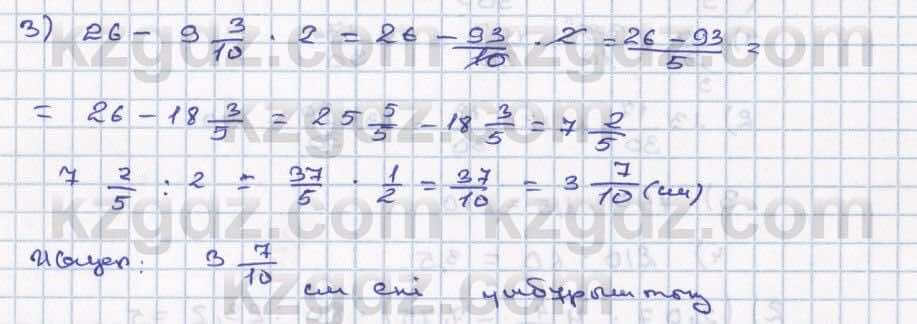 3) 26 - 9 3/10 · 2 = 26 - 93/10 · 2 = 26 - 93/5 =
= 26 - 18 3/5 = 25 5/5 - 18 3/5 = 7 2/5
7 2/5 : 2 = 37/5 · 1/2 = 37/10 = 3 7/10 (см)
Жауап: 3 7/10 см ені үшбұрыштың
kzgdz.com